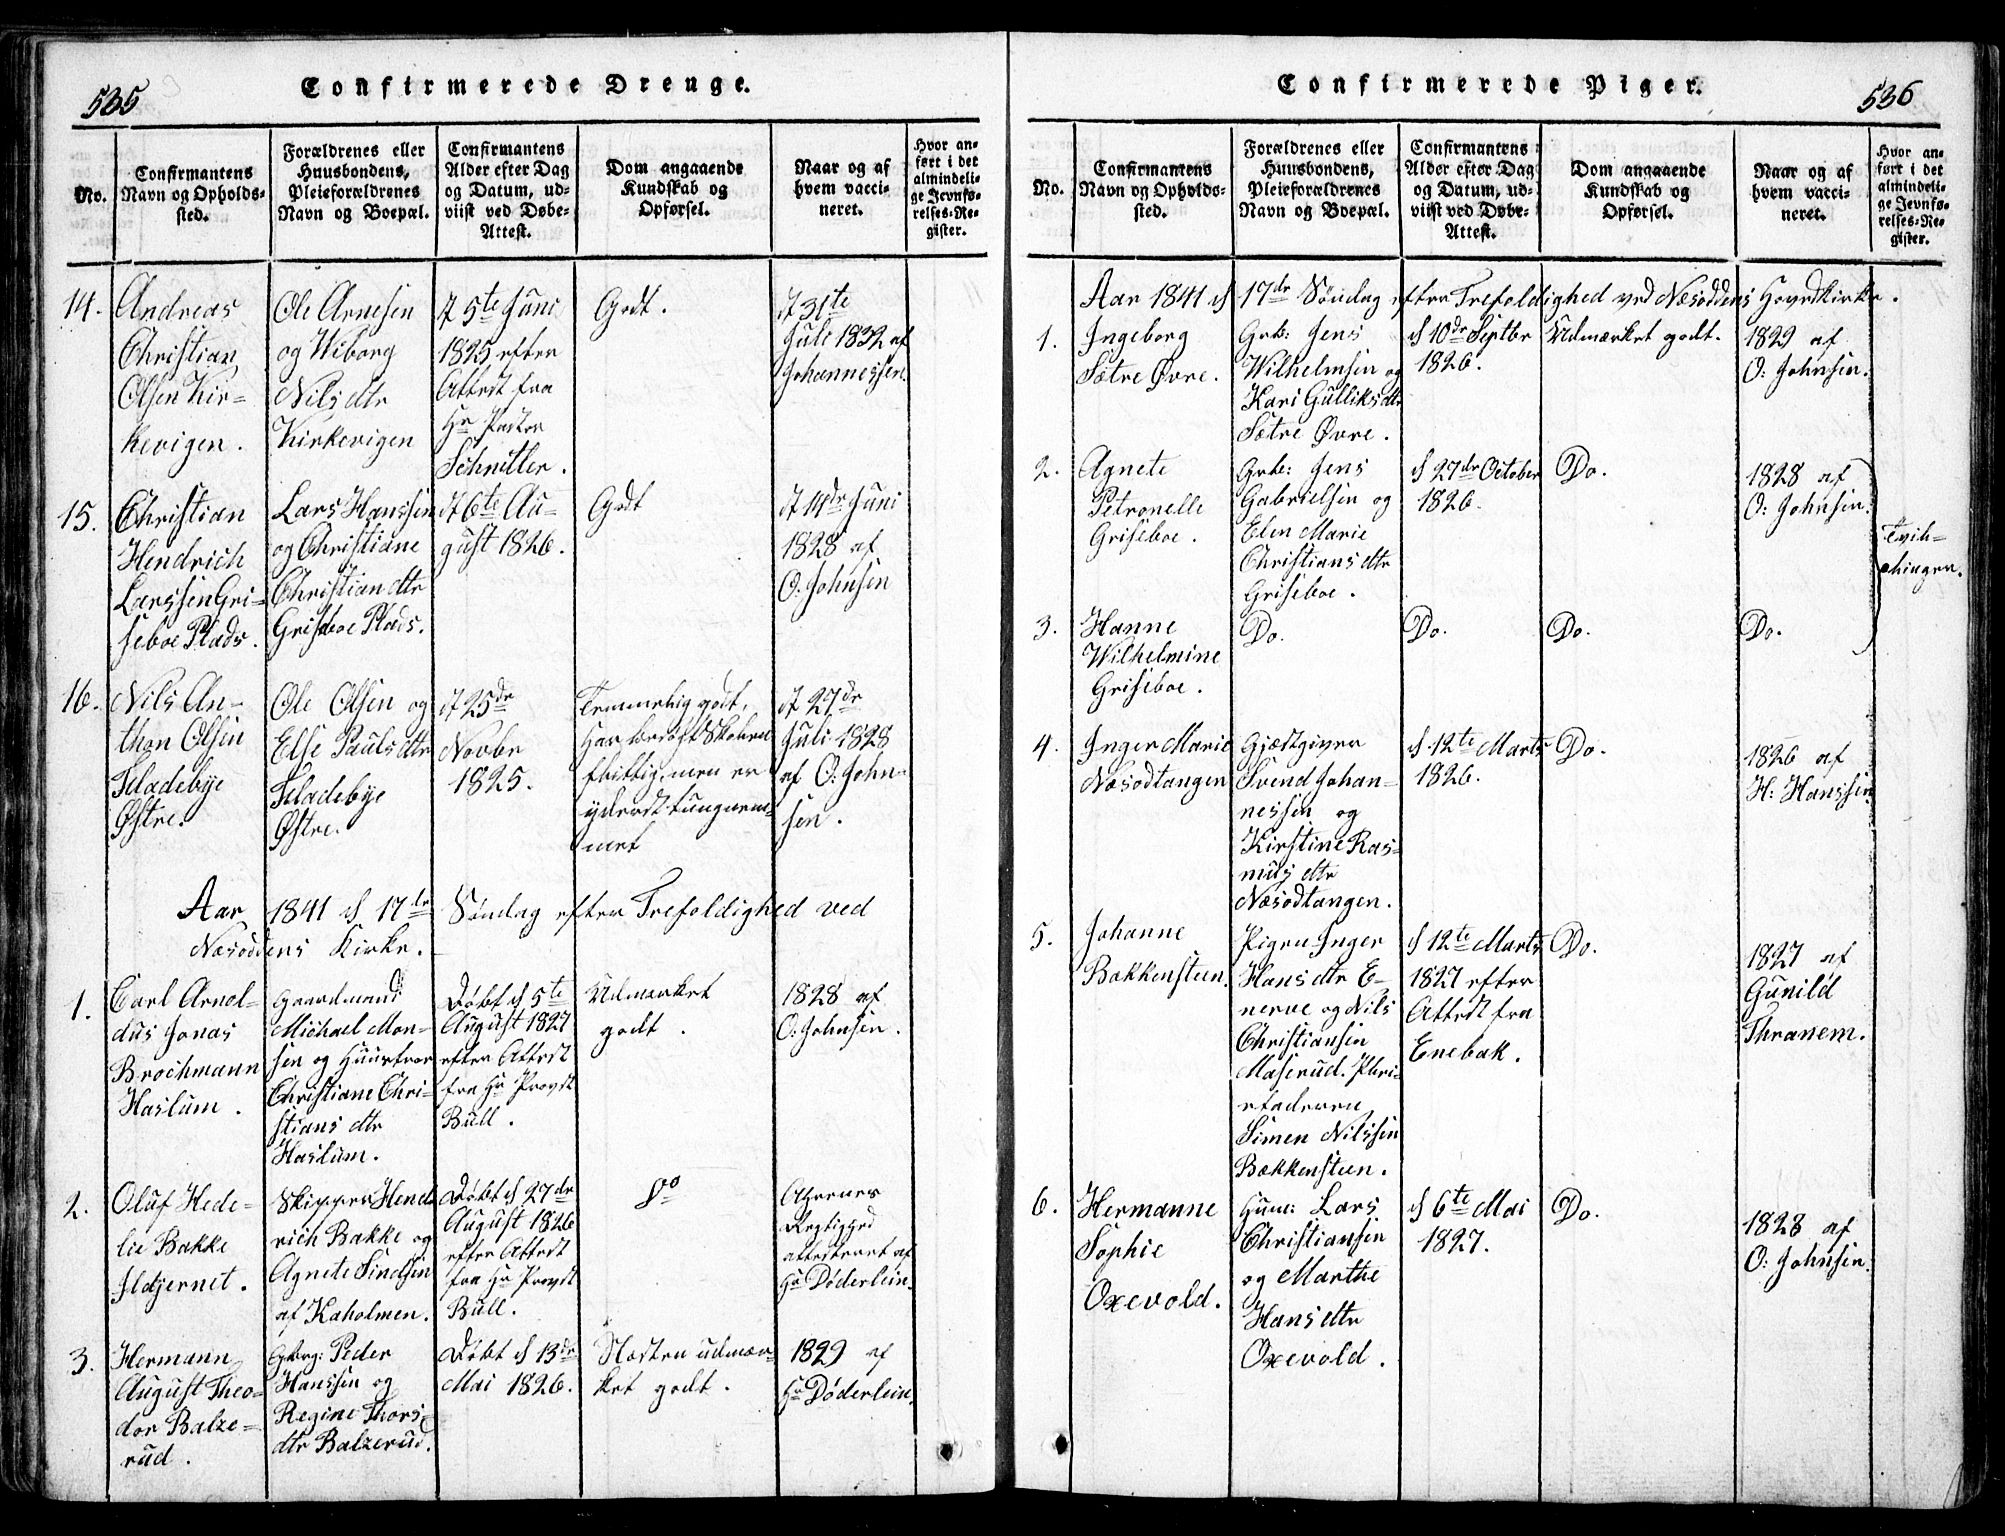 535
Confirmerede Drenge.
No.
Confirmantens
Navn og Opholds-
sted.
Forældrenes eller
Huusbondens,
Pleieforældrenes
Navn og Boepæl.
Confirmantens
Alder efter Dag
og Datum, ud-
viist ved Døbe-
Attest.
Dom angaaende
Kundskab og
Opførsel.
Naar og af
hvem vacci-
neret.
Hvor an-
ført i det
almindeli-
ge Jevnfø-
relses-Re-
gister.
14.
Andreas
Christian
Olsen Kir-
kevigen.
Ole Arnesen
og Wiborg
Nilsdtr
Kirkevigen
d 5te Juni
1825 efter
Attest fra
Hr Pastor
Schnitler.
Godt.
d 31te
Juli 1832 af
Johannessen.
15.
Christian
Hendrich
Larssen Gri-
seboe Plads.
Lars Hanssen
og Christiane
Christiandtr
Griseboe Plads.
d 6te Au-
gust 1826.
Godt
d 14de Juni
1828 af
O. Johnsen
16.
Nils An-
thon Olsen
Fladebye
Østre.
Ole Olsen og
Else Paulsdtr
Fladebye
Østre.
d 25de
Novbr
1825.
Temmelig godt.
Har besøgt Skolen
flittig, men er
yderst tungnem-
met
d 27de
Juli 1828
af O: John-
sen.
Aar 1841 d 17de Søndag efter Trefoldighed ved
Næsoddens Kirke.
1.
Carl Arnol-
dus Jonas
Brochmann
Haslum.
Gaardmand
Michael Mon-
sen og Huustroe
Christiane Chri-
stians dtr
Haslum.
Døbt d 5te
August 1827
efter Attest
fra Hr Provst
Bull.
Udmærket
godt.
1828 af
O: Johnsen.
2.
Oluf Hede-
lie Bakke
Ildjernet.
Skipper Hend-
rich Bakke og
Agnete Sindsen
af Kaholmen.
Døbt d 27de
August 1826
efter Attest
fra Hr Provst
Bull.
Do
Ahrenes
Rigtighed
attesteret af
Hr Døderlein.
3.
Hermann
August Theo-
dor Balze-
rud.
Gbrg: Peder
Hanssen og
Regine Thors
dtr Balzerud.
Døbt d 13de
Mai 1826.
Næsten udmær-
ket godt.
1829 af
Hr Døderlein.
Confirmerede Piger.
536
No.
Confirmantens
Navn og Opholds-
sted.
Forældrenes eller
Huusbondens,
Pleieforældrenes
Navn og Boepæl.
Confirmantens
Alder efter Dag
og Datum, ud-
viist ved Døbe-
Attest.
Dom angaaende
Kundskab og
Opførsel.
Naar og af
hvem vacci-
neret.
Hvor an-
ført i det
almindeli-
ge Jevnfø-
relses-Re-
gister.
Aar 1841 d 17de Søndag efter Trefoldighed ved Næsoddens Hovedkirke.
1.
Ingeborg
Sætre Øvre.
Grb: Jens
Wilhelmsen og
Kari Gulliksdtr
Sætre Øvre.
d 10de Septbr
1826.
Udmærket godt.
1829 af
O: Johnsen.
2.
Agnete
Petronelle
Griseboe.
Grb: Jens
Gabrielsen og
Elen Marie
Christiansdtr
Griseboe.
d 27de October
1826.
Do.
1828 af
O: Johnsen.
3.
Hanne
Wilhelmine
Griseboe.
Do.
Do.
Do.
Do.
Tvil-
linger.
4.
Inger Marie
Næsodtangen
Gjæstgiver
Svend Johan-
nessen og
Kirstine Ras-
mus dtr
Næsodtangen.
d 12te Marts
1826.
Do.
1826 af
H: Hanssen
5.
Johanne
Bækkensteen.
Pigen Inger
Hansdtr E-
nerve og Nils
Christiansen
Maserud. Pleie-
faderen
Simen Nilssen
Bækkensteen.
d 12te Marts
1827 efter
Attest fra
Enebak.
Do.
1827 af
Gunild
Thranem.
6.
Hermanne
Sophie
Oxevold.
Huus: Lars
Christiansen
og Marthe
Hansdtr
Oxevold.
d 6te Mai
1827.
Do.
1828 af
O: Johnsen.